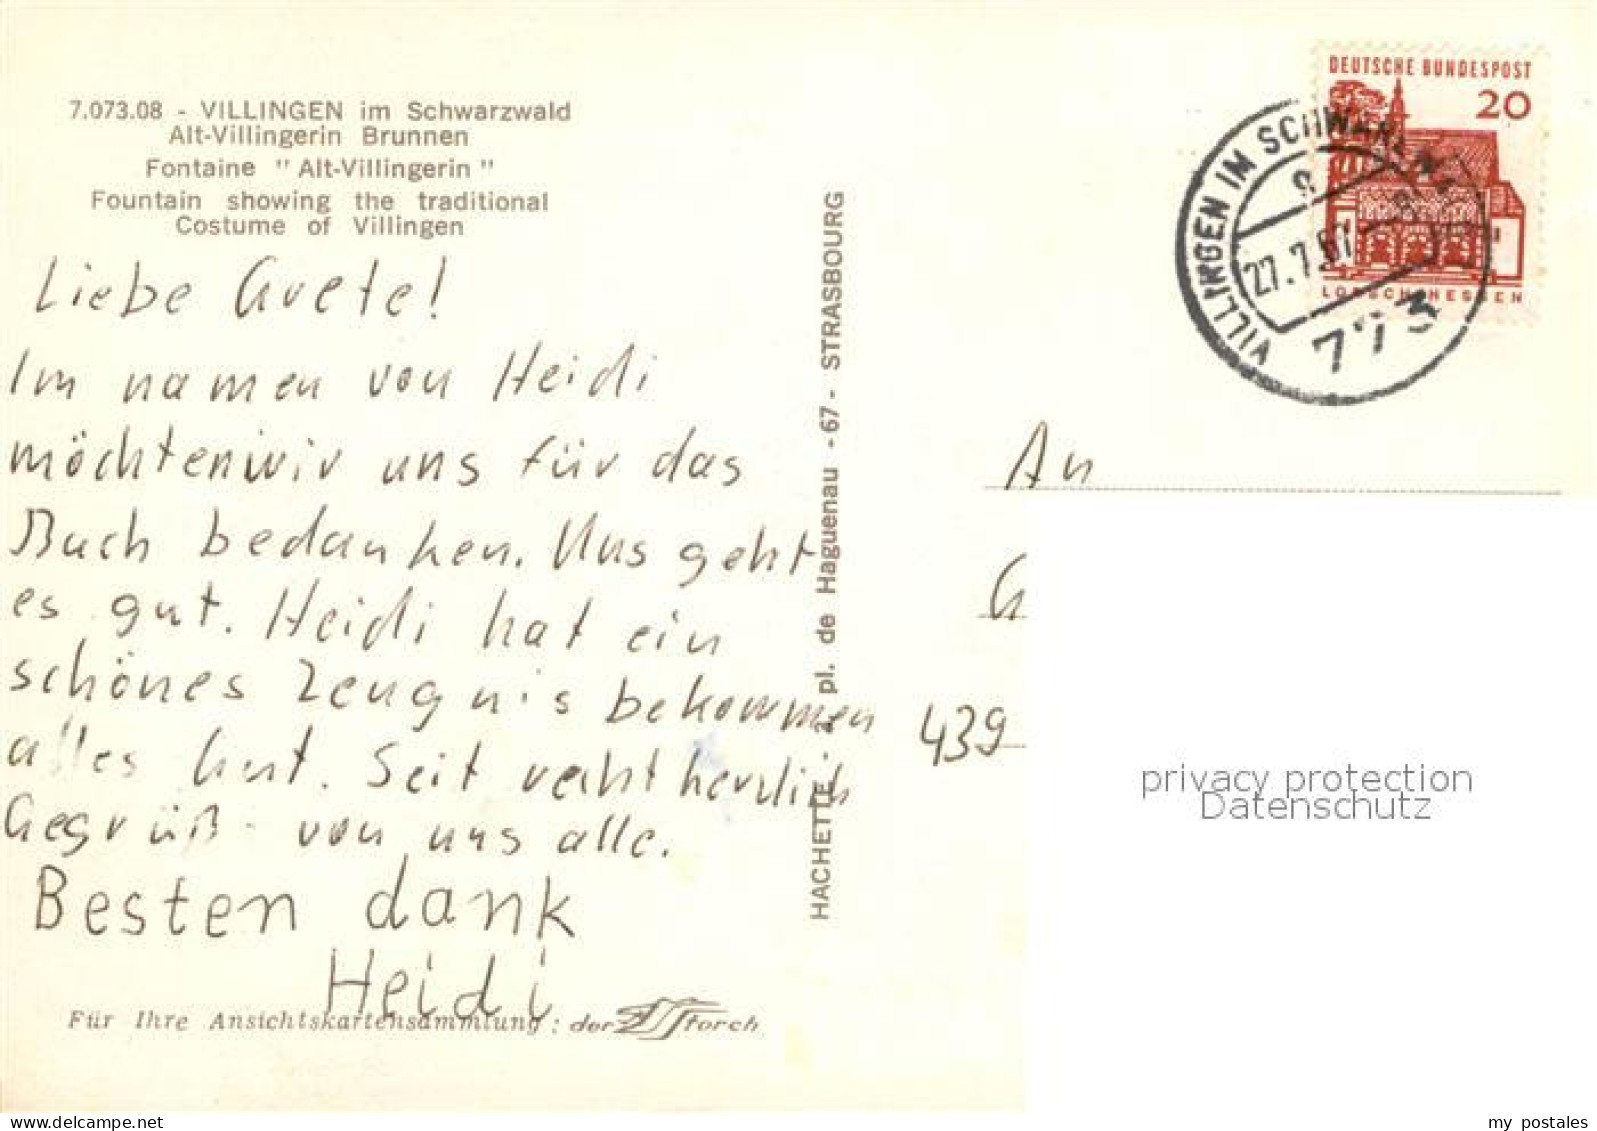 7.073.08 - VILLINGEN im Schwarzwald
Alt-Villingerin Brunnen
Fontaine " Alt-Villingerin "
Fountain showing the traditional
Costume of Villingen
Liebe Grete!
Im namen von Heidi
möchtenwir uns für das
Buch bedanken. Uns geht
es gut. Heidi hat ein
schönes Zeugnis bekommen
alles Gut. Seit recht herzlich
Gegrüß von uns alle.
Besten dank
Heidi
Für Ihre Ansichtskartensammlung : der Storch
HACHETTE - 2 pl. de Haguenau -67- STRASBOURG
DEUTSCHE BUNDESPOST
20
LORSCH/HESSEN
VILLINGEN IM SCHWARZWALD
27.7.67
773
An
G
439
privacy protection
Datenschutz
my postales